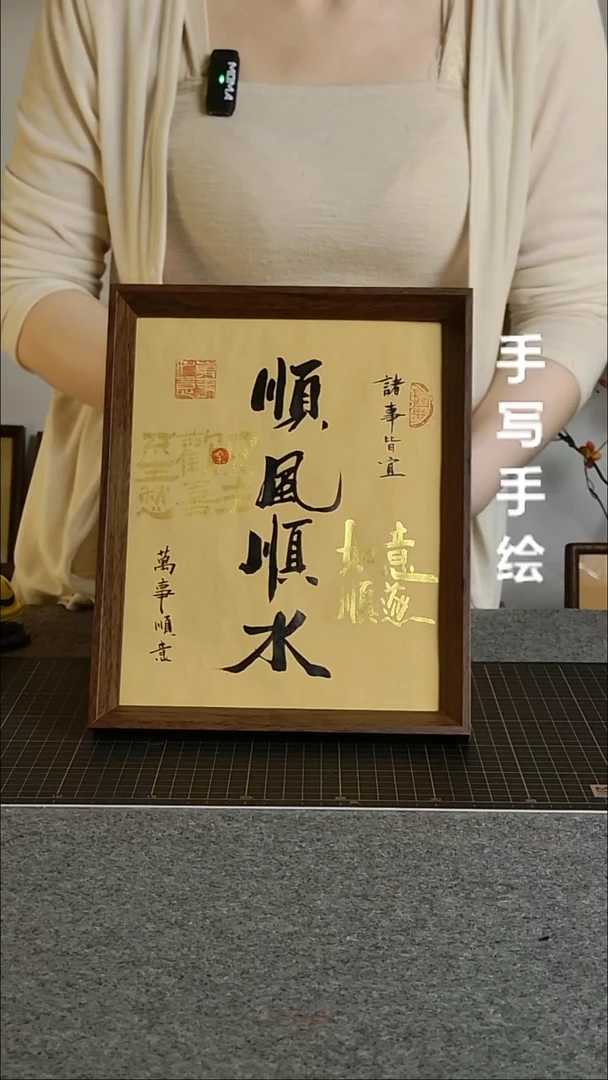 MOMA
順風順水
諸事皆宜
萬事順意
如意
順遂
歡喜
手写手绘